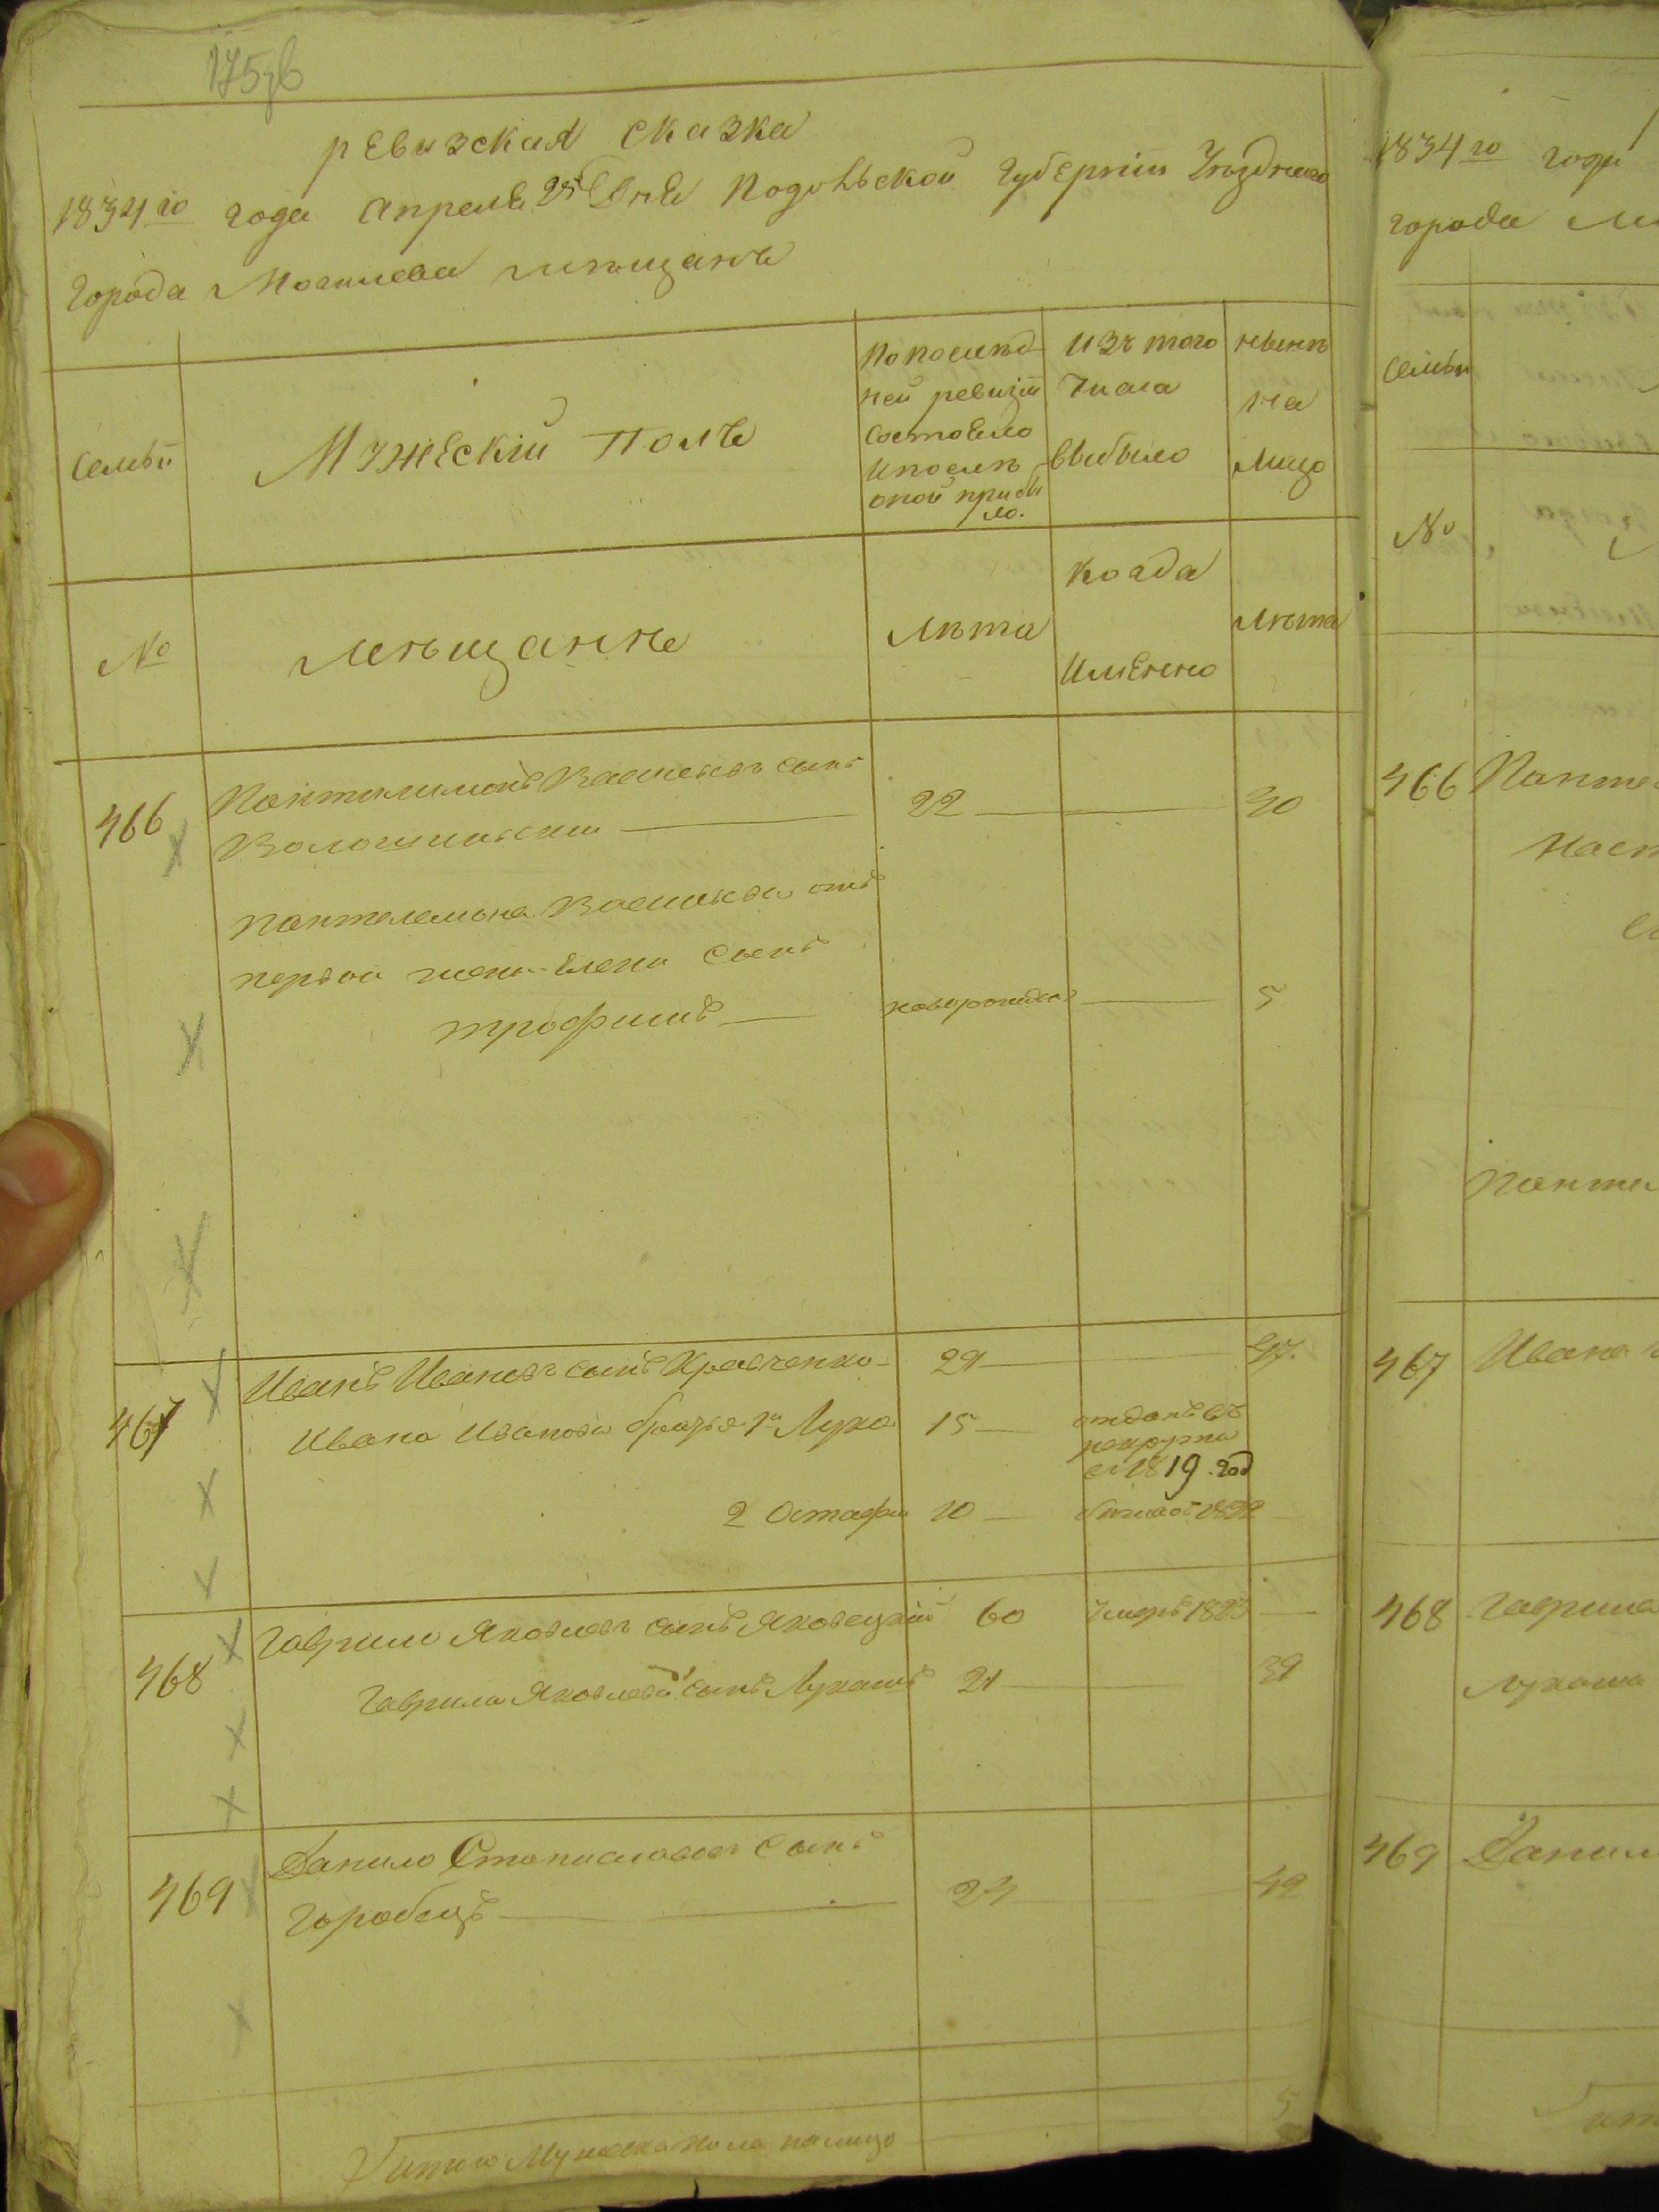 175 зв
ревизская сказка
1834 го года апреля 25 дня Подольской Губернии Уѣзднаго
города Могилева мѣщанъ
Семьи
Мужескій Полъ
По послѣд
ней ревизіи
Состояло
и послѣ
оной прибы
ло.
Изъ того
числа
выбыло
нынѣ
на
лицо
№
мѣщанъ
Лѣта
когда
именно
Лѣта
466
Пантилимонъ Васильевъ сынъ
Волошиньский
22
40
Пантелемона Васильева отъ
первой жены Елены сынъ
трофимъ
новорожден
5
467
Иванъ Ивановъ сынъ Кравченко
29
47.
Ивана Иванова братья 1й Лука
15
отданъ въ
рекруты
в 1819 год
2 Остафи
10
468
Гаврило Яковлевъ сынъ Яковецкий
60
умеръ 1823
Гаврила Яковлева сынъ Лукашъ
21
39
469
Данило Станиславовъ Сынъ
горобецъ
24
42
итого Мужеска пола налицо
5
1834 го года
города
Семьи
№
466
467
Ивана
468
Гаврила
Лукаша
469